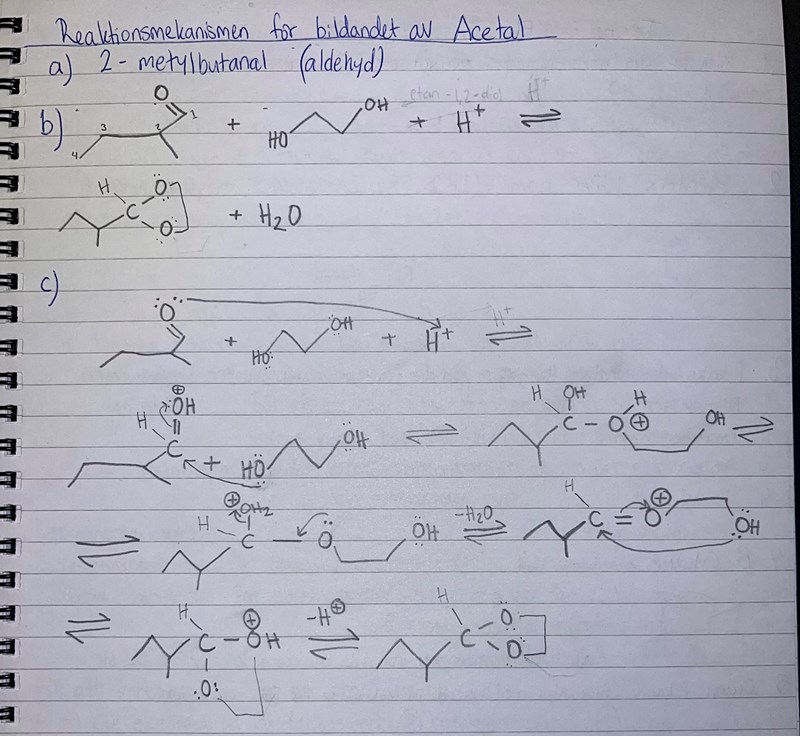 Reaktionsmekanismen för bildandet av Acetal
a) 2-metylbutanal (aldehyd)
b) O 1 2 3 4 + HO OH + H⁺ ⇌
H C O O + H₂O
c)
O + HO OH + H⁺ H⁺ ⇌
⊕ OH H C + HO OH ⇌ H OH C - O H ⊕ OH ⇌
⇌ ⊕ OH₂ H C - O OH -H₂O ⇌ H C = O ⊕ OH
⇌ H C - O H ⊕ O -H⊕ ⇌ H C O O